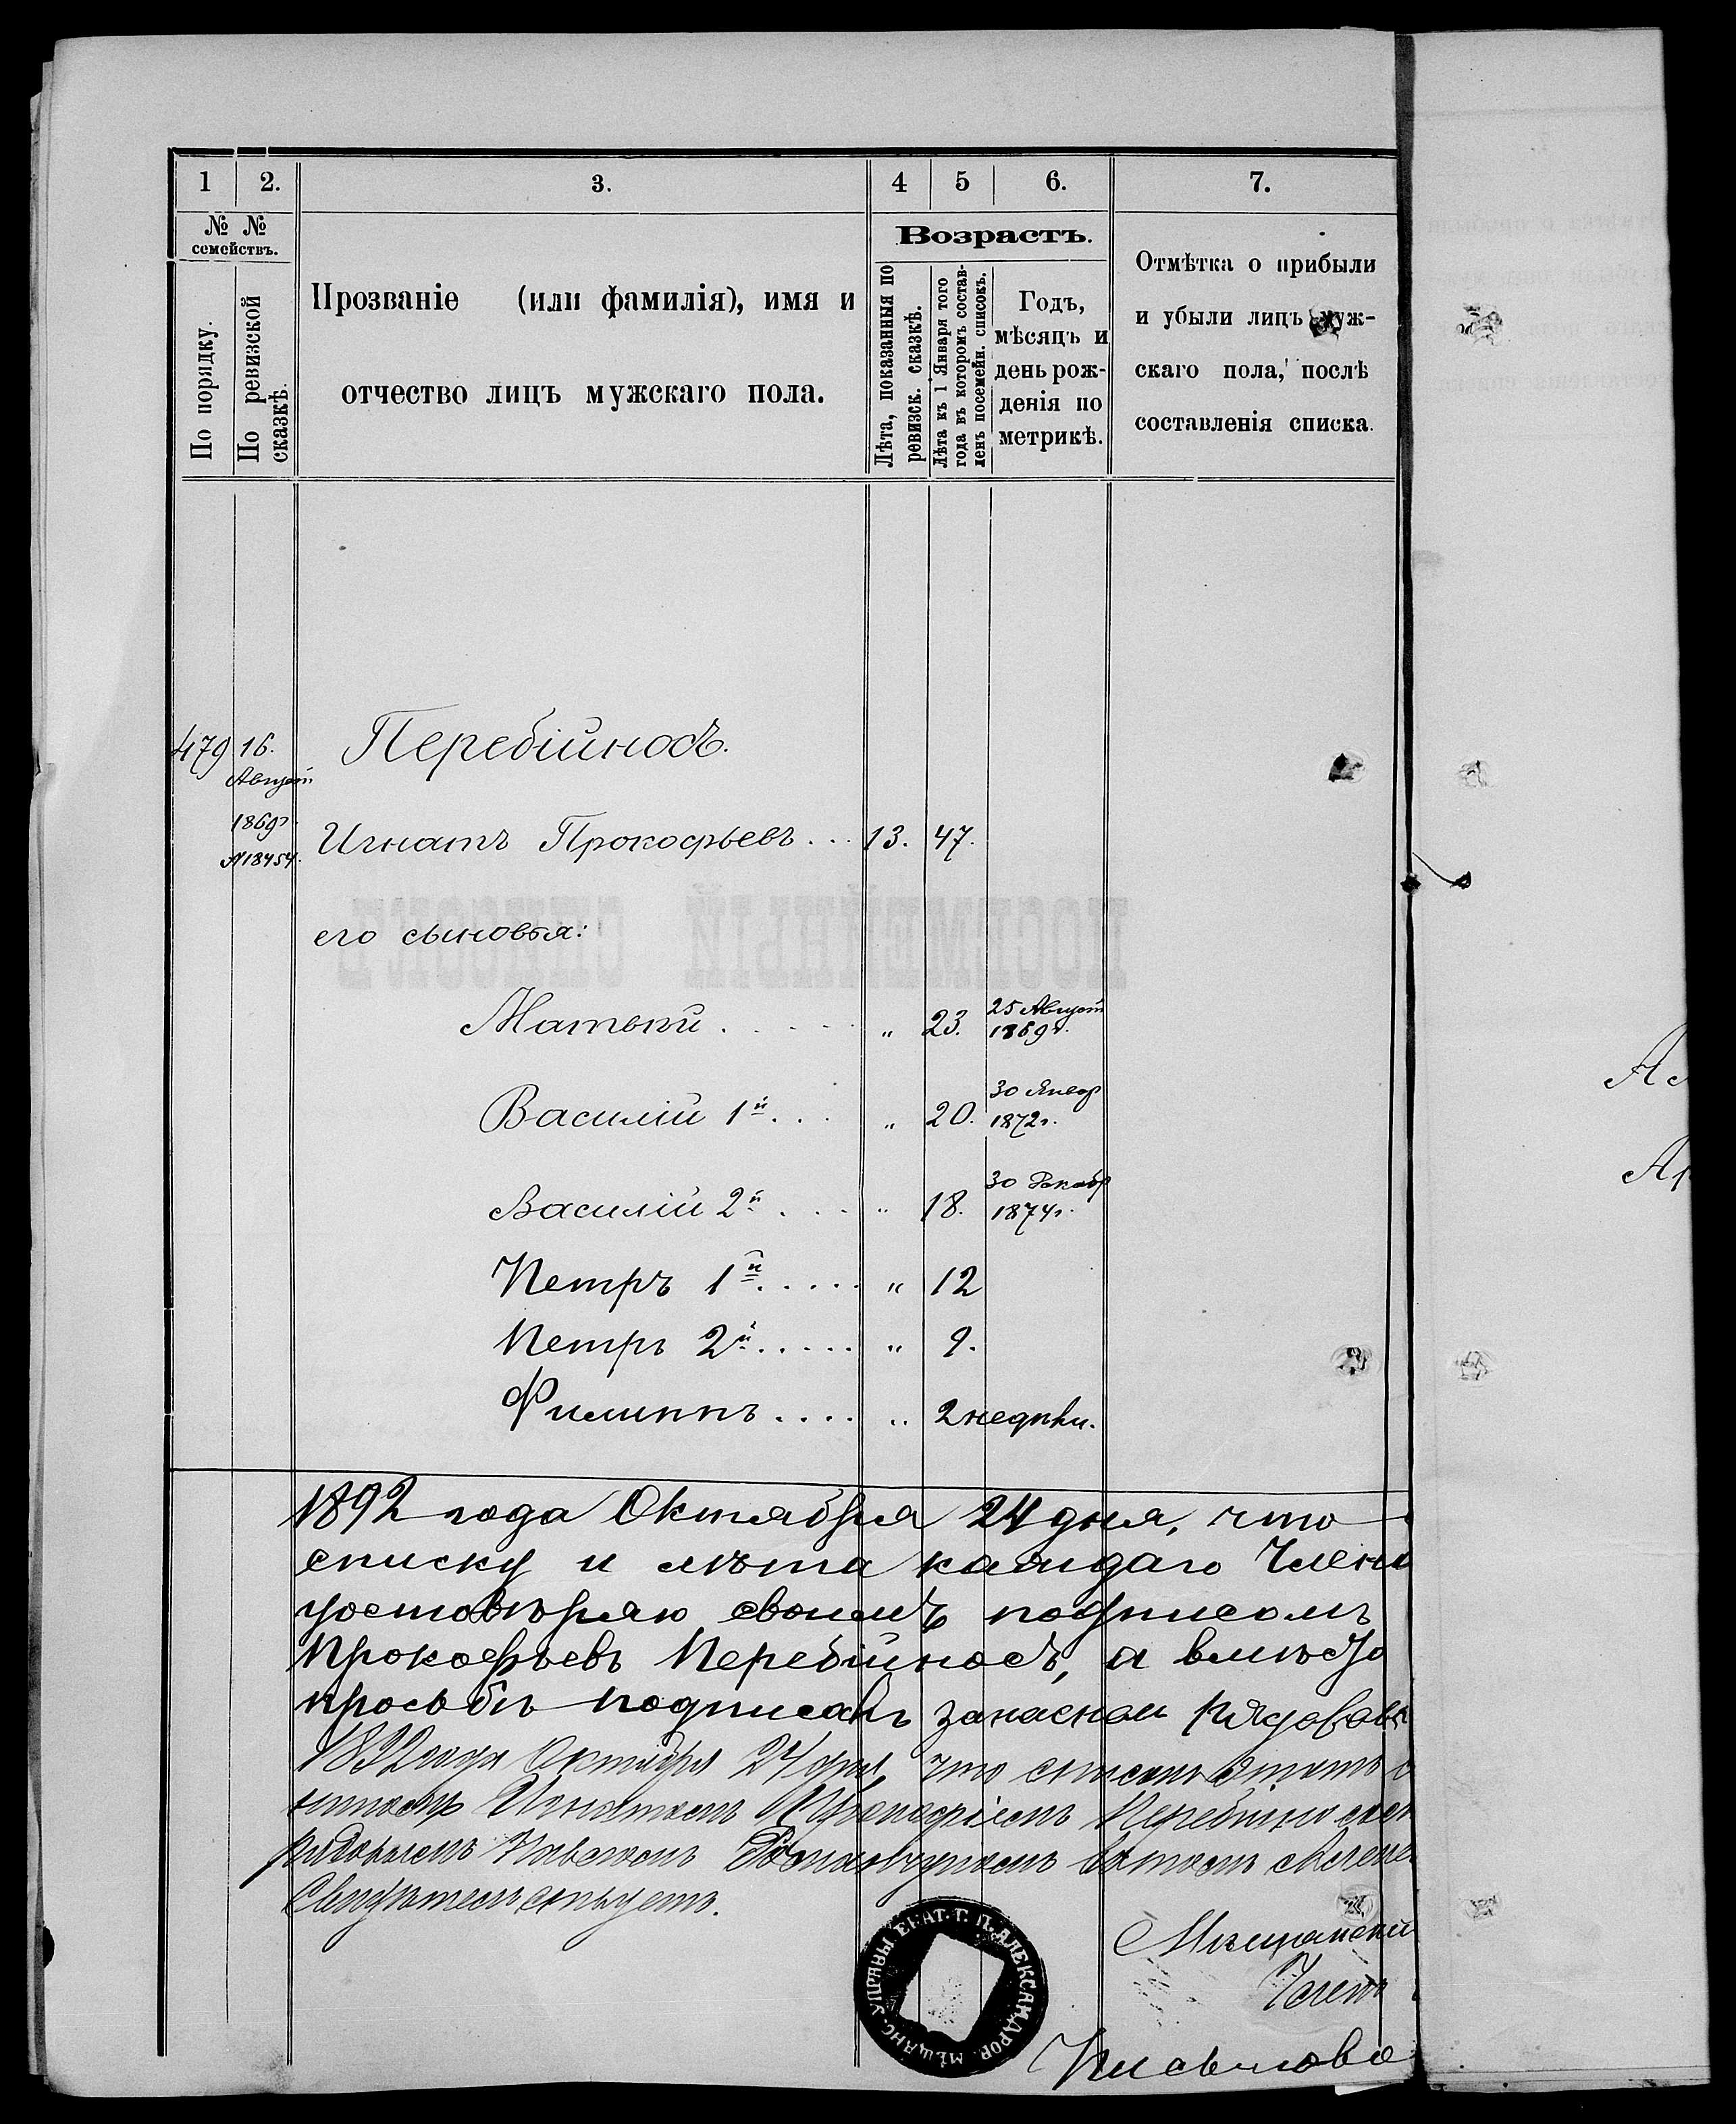 1 2. 3. 4 5 6. 7.
№ № семействъ.
По порядку.
По ревизской сказкѣ.
Прозваніе (или фамилія), имя и
отчество лицъ мужскаго пола.
Возрастъ.
Лѣта, показанныя по ревизск. сказкѣ.
Лѣта къ 1 Января того года въ которомъ составленъ посемейн. списокъ.
Годъ,
мѣсяцъ и
день рож-
денія по
метрикѣ.
Отмѣтка о прибыли
и убыли лицъ муж-
скаго пола, послѣ
составленія списка.
479 16. Перебійносъ.
Август
1869г.
№18454.
Игнатъ Прокофьевъ... 13. 47.
его сыновья:
Матвѣй..... „ 23. 25 Август 1869г.
Василій 1й... „ 20. 30 Январ 1872г.
Василій 2й.... „ 18. 30 Декабр 1874г.
Петръ 1й..... „ 12
Петръ 2й..... „ 9.
Филиппъ.... „ 2 недѣли.
1892 года Октября 24 дня, что
списку и лѣта каждаго Члена
удостовѣряю своимъ подписомъ
Прокофьевъ Перебійносъ, а вмѣсто
просьбѣ подписалъ запасной Рядовой
1892 года Октября 24 дня, что списокъ этотъ
Игнатомъ Прокофіемъ Перебійносомъ
рядовымъ Павломъ
Свидѣтельствуетъ.
Мѣщанскій
Членъ
МѢЩАНС. УПРАВЫ ЕКАТ. Г. П. АЛЕКСАНДРОВ.